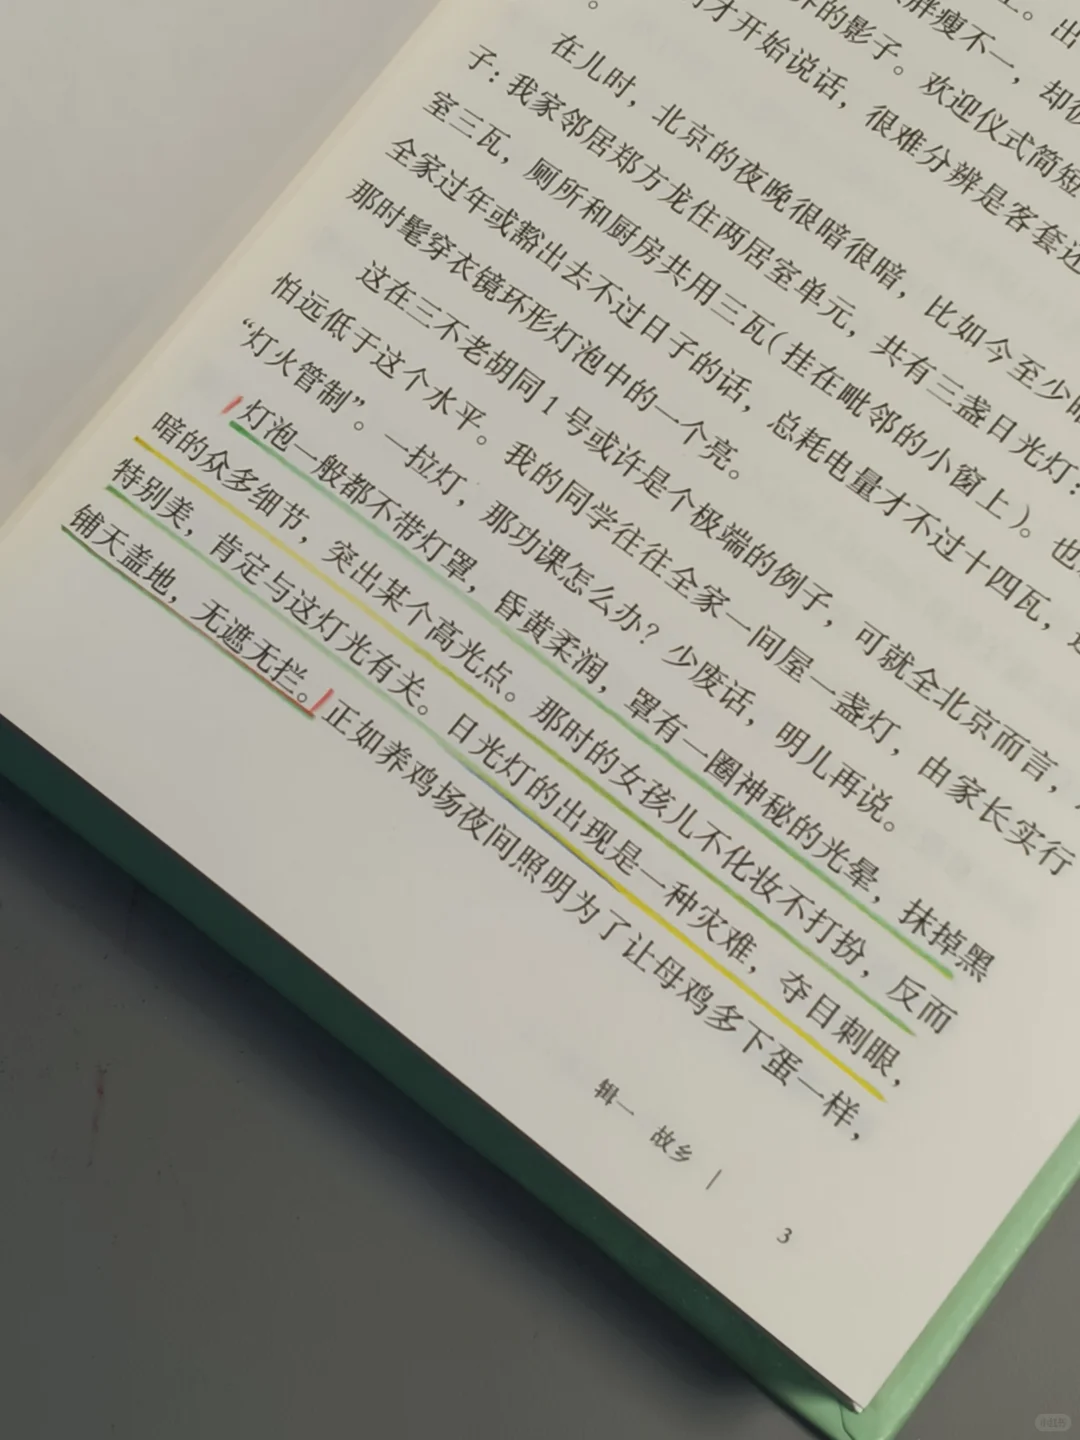 上。出
胖瘦不一，却彼
的影子。欢迎仪式简短
才开始说话，很难分辨是客套还
在儿时，北京的夜晚很暗很暗，比如今至少暗
子：我家邻居郑方龙住两居室单元，共有三盏日光灯：
室三瓦，厕所和厨房共用三瓦（挂在毗邻的小窗上）。也
全家过年或豁出去不过日子的话，总耗电量才不过十四瓦，
那时髦穿衣镜环形灯泡中的一个亮。
这在三不老胡同1号或许是个极端的例子，可就全北京而言，
怕远低于这个水平。我的同学往往全家一间屋一盏灯，由家长实行
“灯火管制”。一拉灯，那功课怎么办？少废话，明儿再说。
灯泡一般都不带灯罩，昏黄柔润，罩有一圈神秘的光晕，抹掉黑
暗的众多细节，突出某个高光点。那时的女孩儿不化妆不打扮，反而
特别美，肯定与这灯光有关。日光灯的出现是一种灾难，夺目刺眼，
铺天盖地，无遮无拦。正如养鸡场夜间照明为了让母鸡多下蛋一样，
辑一 故乡 |
3
小红书